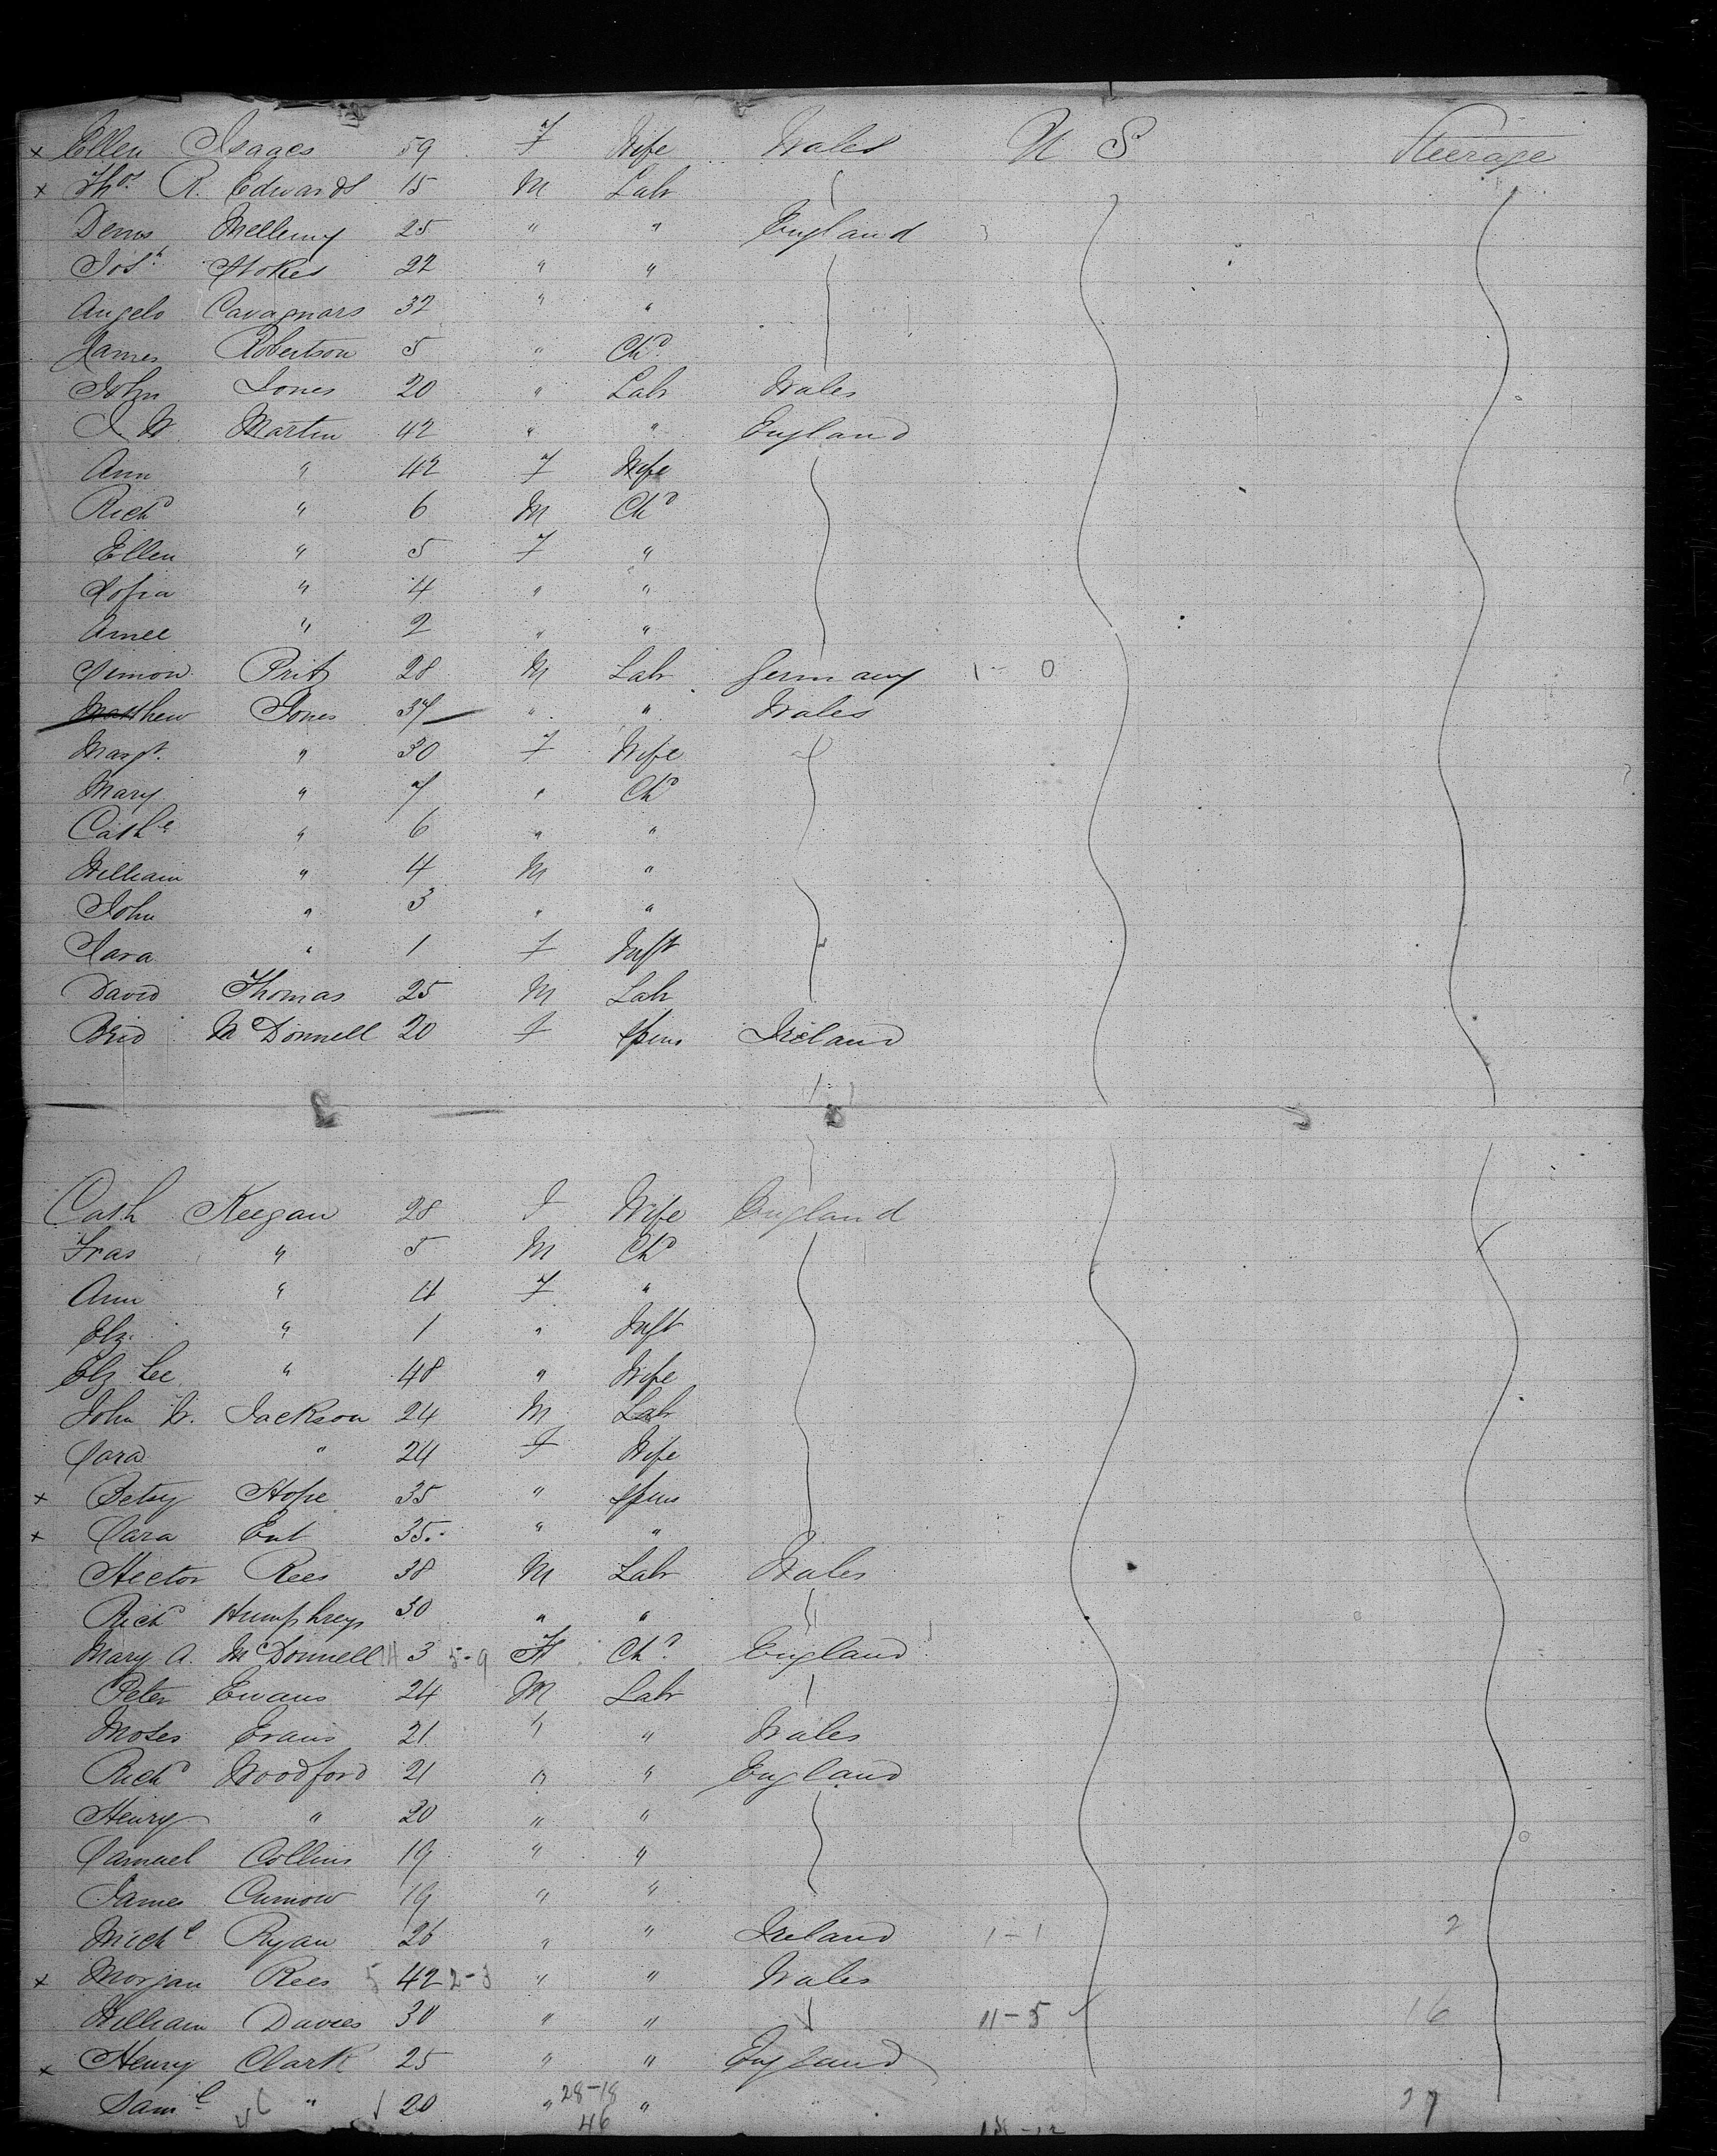 x Ellen Isaacs 59 F Wife Wales U S Steerage
x Thos. R. Edwards 15 M Labr
Denis 25 " " England
Josh. Stokes 22 " "
Angelo Cavagnaro 32 " "
James Robertson 5 " Chd
John Jones 20 " Labr Wales
J W. Martin 42 " " England
Ann " 42 F Wife
Richd " 6 M Chd
Ellen " 5 F "
Sofia " 4 " "
Amee " 2 " "
Simon Pritz 28 M Labr Germany 1 - 0
Matthew Jones 37 " " Wales
Margt. " 30 F Wife
Mary " 7 " Chd
Cathe " 6 " "
William " 4 M "
John " 3 " "
Sara " 1 F Inft
David Thomas 25 M Labr
Brid McDonnell 20 F Spins Ireland
Cath Keegan 28 F Wife England
Fras " 5 M Chd
Ann " 4 F "
Elz. " 1 " Inft
Elz Lee " 48 " Wife
John W. Jackson 24 M Labr
Sara " 24 F Wife
x Betsy Hope 35 " Spins
x Sara Ent 35 " "
Hector Rees 38 M Labr Wales
Richd Humphreys 30 " "
Mary A. McDonnell 3 5-9 F Chd England
Peter Ewans 24 M Labr
Moses Evans 21 " " Wales
Richd Woodford 21 " " England
Henry " 20 " "
Samuel Collins 19 " "
James Curnow 19 " "
Michl Ryan 26 " " Ireland 1-1 2
x Morgan Rees 5 42 2-3 " " Wales
William Davies 30 " " 11-5 16
x Henry Clark 25 " " England
Saml " 20 " 28-18 " 27
46